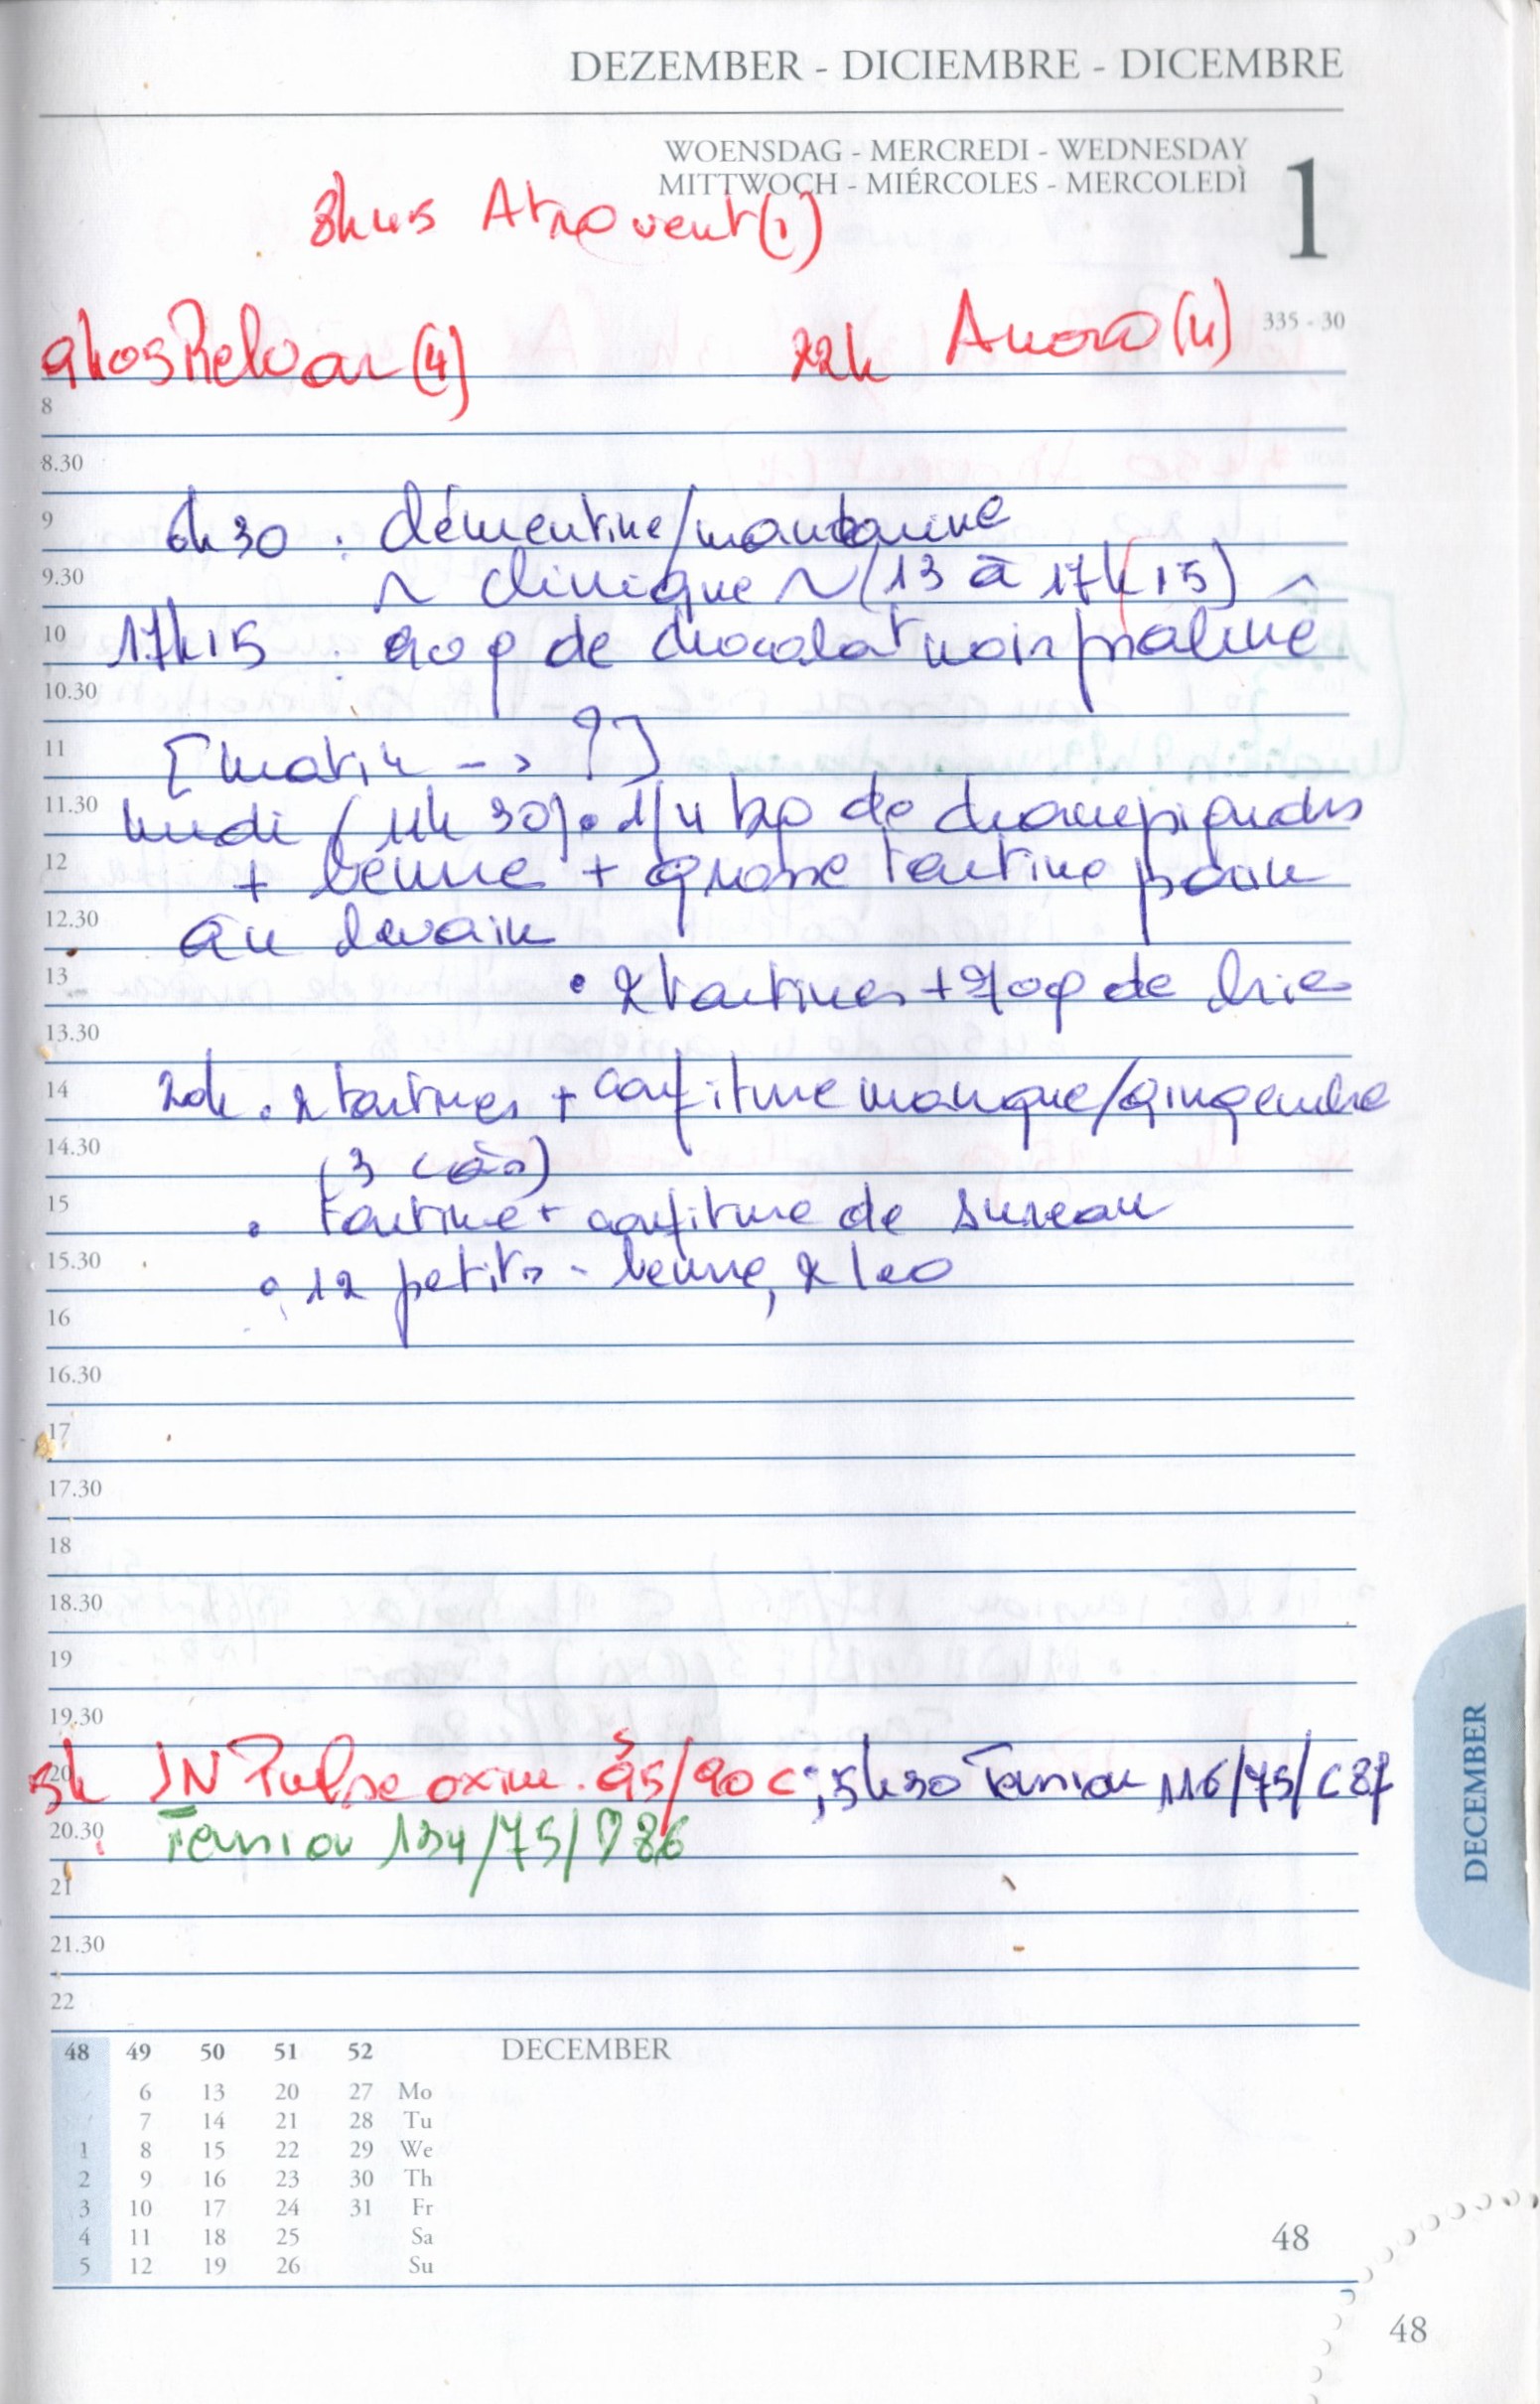 DEZEMBER - DICIEMBRE - DICEMBRE
WOENSDAG - MERCREDI - WEDNESDAY
MITTWOCH - MIÉRCOLES - MERCOLEDÌ
1
8h45 Atrovent (1)
335 - 30
9h05 Relvar (4) 22h Anoro (4)
8
8.30
9 6h30 : clémentine/mandarine
9.30 ~ clinique ~ (13 à 17h15)
10 17h15 : 90 g de chocolat noir praliné
10.30
11 [Matin -> ?]
11.30 Midi (11h30) • 1/4 de champignons
12 + beurre + grosse tartine pain
12.30 au levain
13 • 2 tartines + 70g de brie
13.30
14 20h • 2 tartines + confiture mangue/gingembre
14.30 (3 càs)
15 • tartine + confiture de sureau
15.30 • 12 petits - beurre, 2 leo
16
16.30
17
17.30
18
18.30
19
19.30
20 5h IN Pulse oxim. 95/90 c ; 5h30 Tension 116/75/C87
20.30 Tension 134/75/D86
21
21.30
22
48 49 50 51 52 DECEMBER
6 13 20 27 Mo
7 14 21 28 Tu
1 8 15 22 29 We
2 9 16 23 30 Th
3 10 17 24 31 Fr
4 11 18 25 Sa
5 12 19 26 Su
48
48
DECEMBER